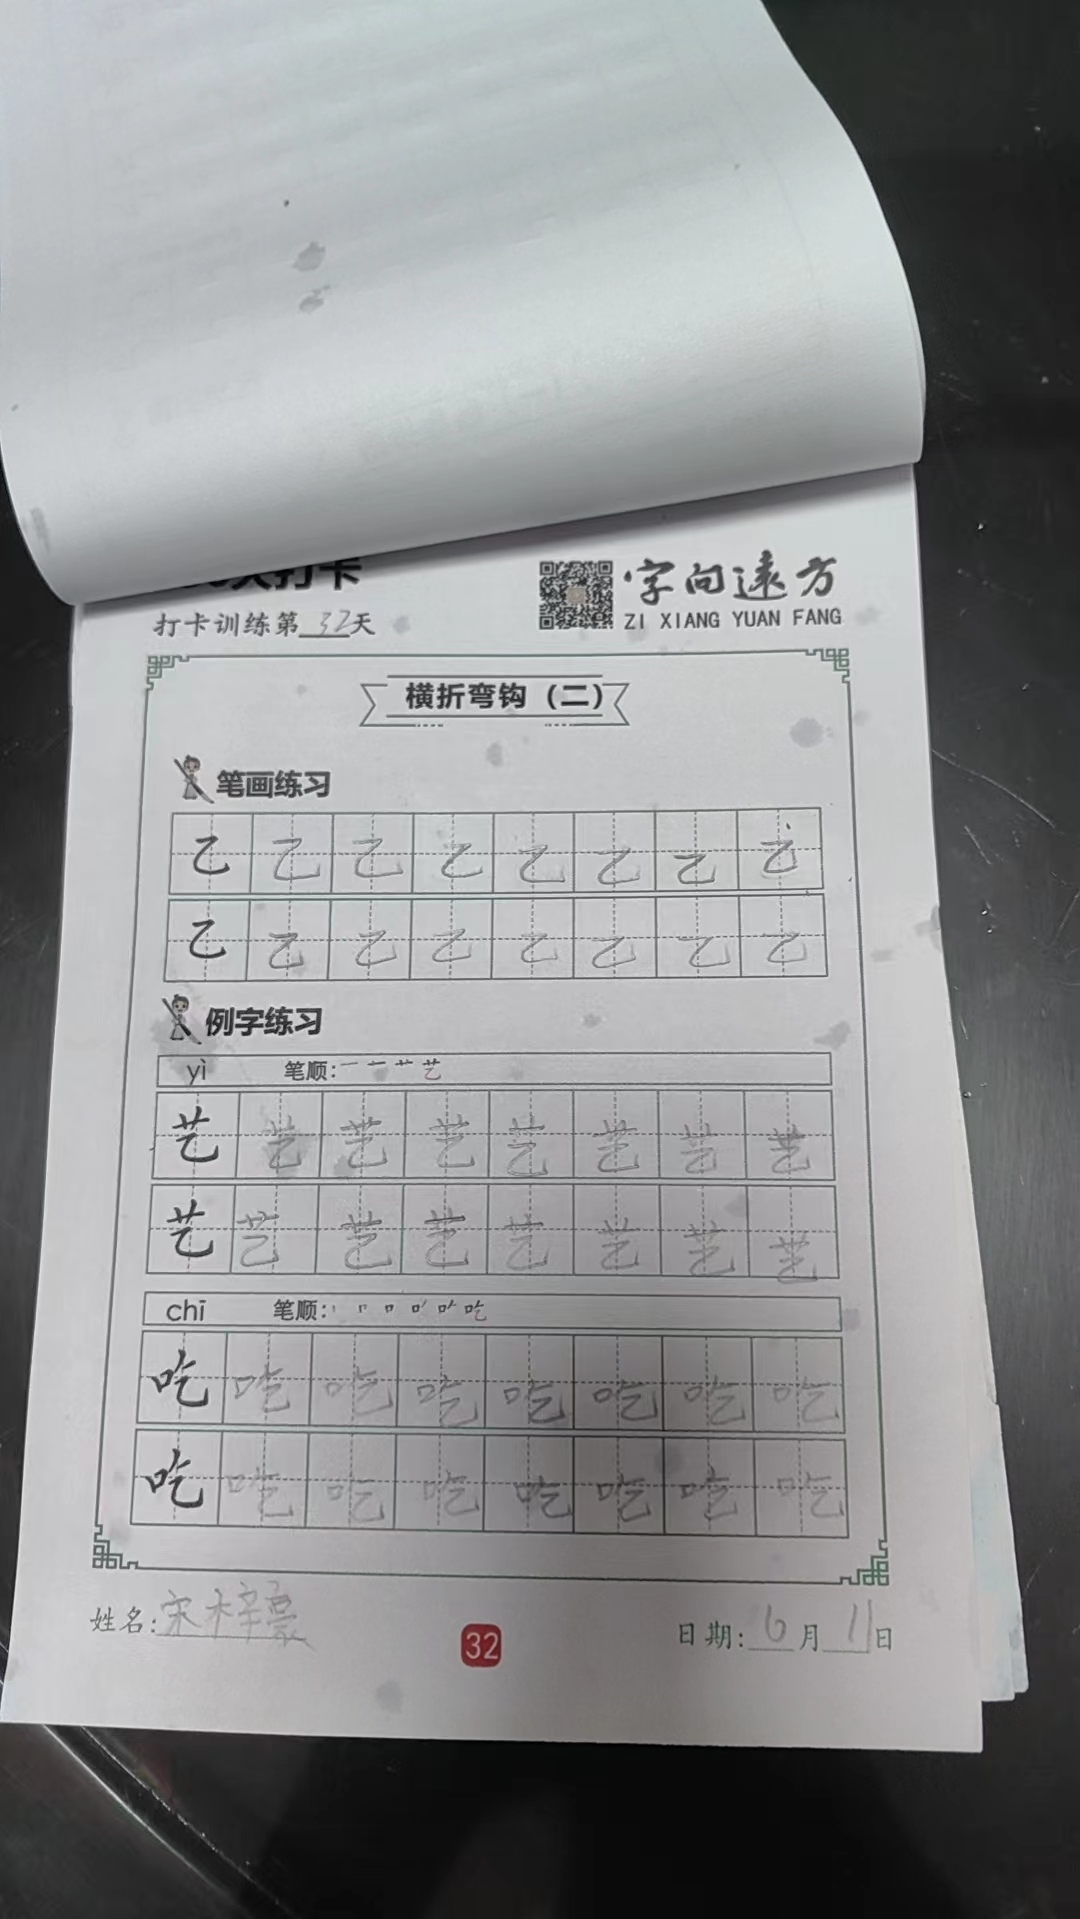 天打卡
字向远方
打卡训练第32天
ZI XIANG YUAN FANG
横折弯钩（二）
笔画练习
乙 乙 乙 乙 乙 乙 乙 乙
乙 乙 乙 乙 乙 乙 乙 乙
例字练习
yì 笔顺：一 十 艹 艺
艺 艺 艺 艺 艺 艺 艺 艺
艺 艺 艺 艺 艺 艺 艺 艺
chī 笔顺：丨 𠃍 口 吃
吃 吃 吃 吃 吃 吃 吃 吃
吃 吃 吃 吃 吃 吃 吃 吃
姓名：宋梓豪
32
日期：6月11日